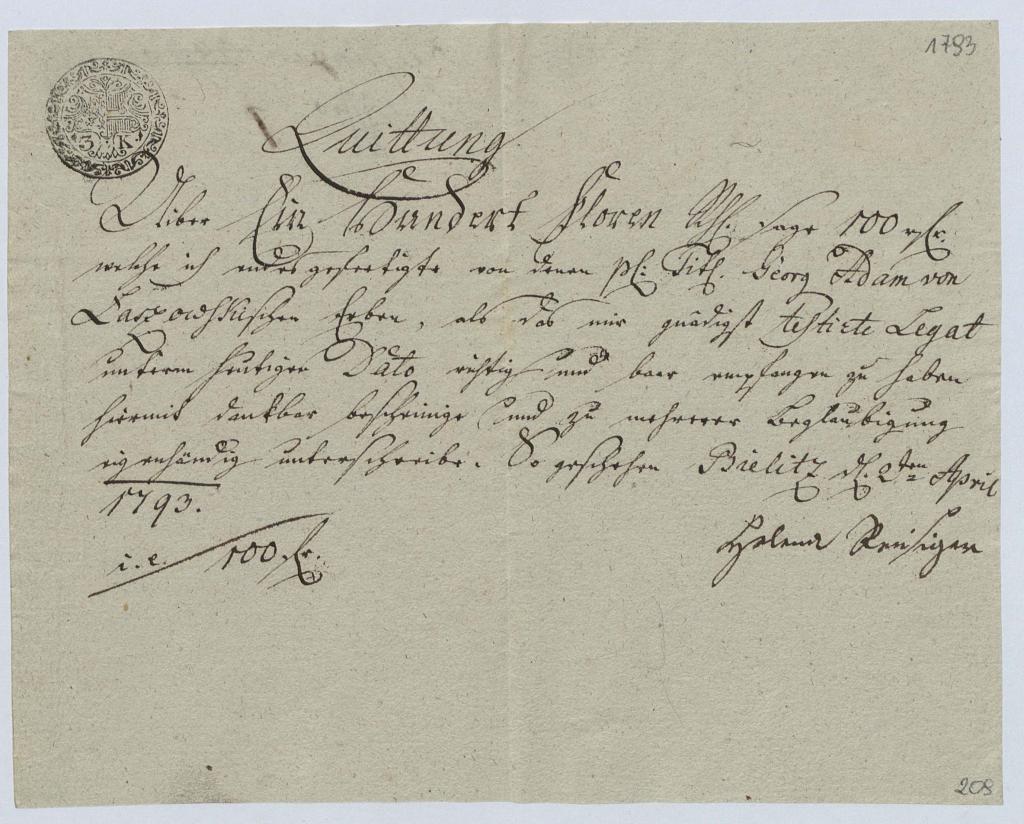 1793
3 K
Quittung
Uiber Ein Hundert Floren Rh: sage 100 rfr:
welche ich endesgefertigte von denen pl: Tit. Georg Adam von
Laszowskischen Erben, als das mir gnädigst testirte Legat
unterm heutigen Dato richtig und baar empfangen zu haben
hiermit dankbar bescheinige und zu mehrerer Beglaubigung
eigenhändig unterschreibe. So geschehen Bielitz d. 2ten April
1793.
i. e. 100 fr.
Helena
208